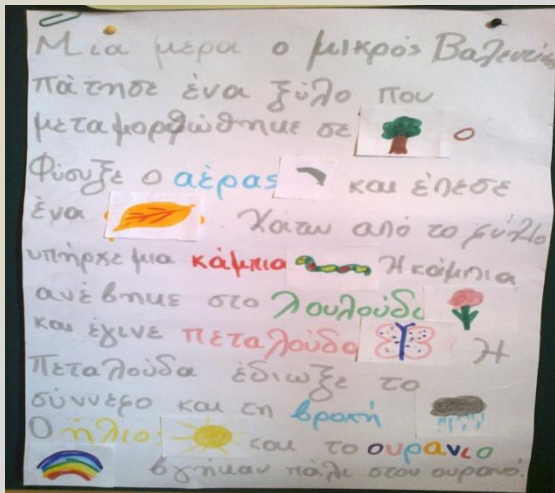 Μια μέρα ο μικρός Βαλεντίνο
πάτησε ένα ξύλο που
μεταμορφώθηκε σε
Φύσυξε ο αέρας και έπεσε
ένα . Κάτω από το φύλλο
υπήρχε μια κάμπια Η κάμπια
ανέβηκε στο λουλούδι
και έγινε πεταλούδα Η
Πεταλούδα έδιωξε το
σύννεφο και τη βροχή
Ο ήλιο και το ουρανιο
βγήκαν πάλι στον ουρανό.